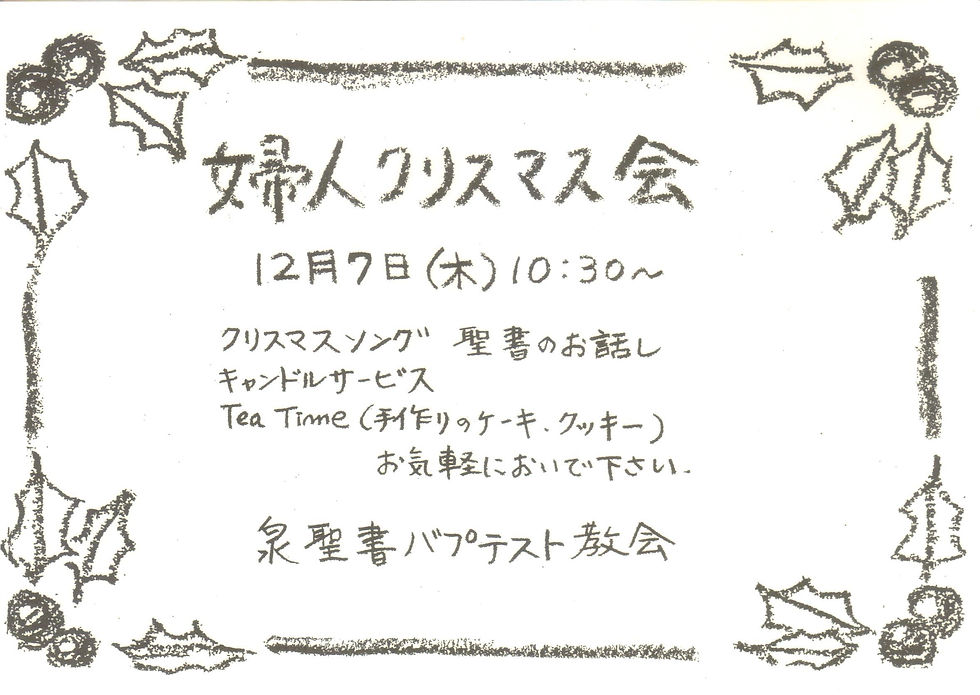 婦人クリスマス会
12月7日(木)10:30～
クリスマスソング 聖書のお話し
キャンドルサービス
Tea Time(手作りのケーキ、クッキー)
お気軽においで下さい。
泉聖書バプテスト教会